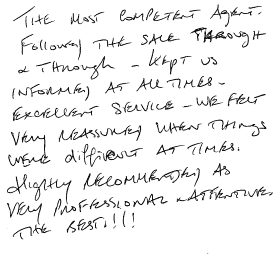 THE MOST COMPETENT AGENT.
FOLLOWED THE SALE THROUGH
& THROUGH - KEPT US
INFORMED AT ALL TIMES -
EXCELLENT SERVICE - WE FELT
VERY REASSURED WHEN THINGS
WERE difficult AT TIMES.
HIGHLY RECOMMENDED AS
VERY PROFESSIONAL & ATTENTIVE
THE BEST!!!